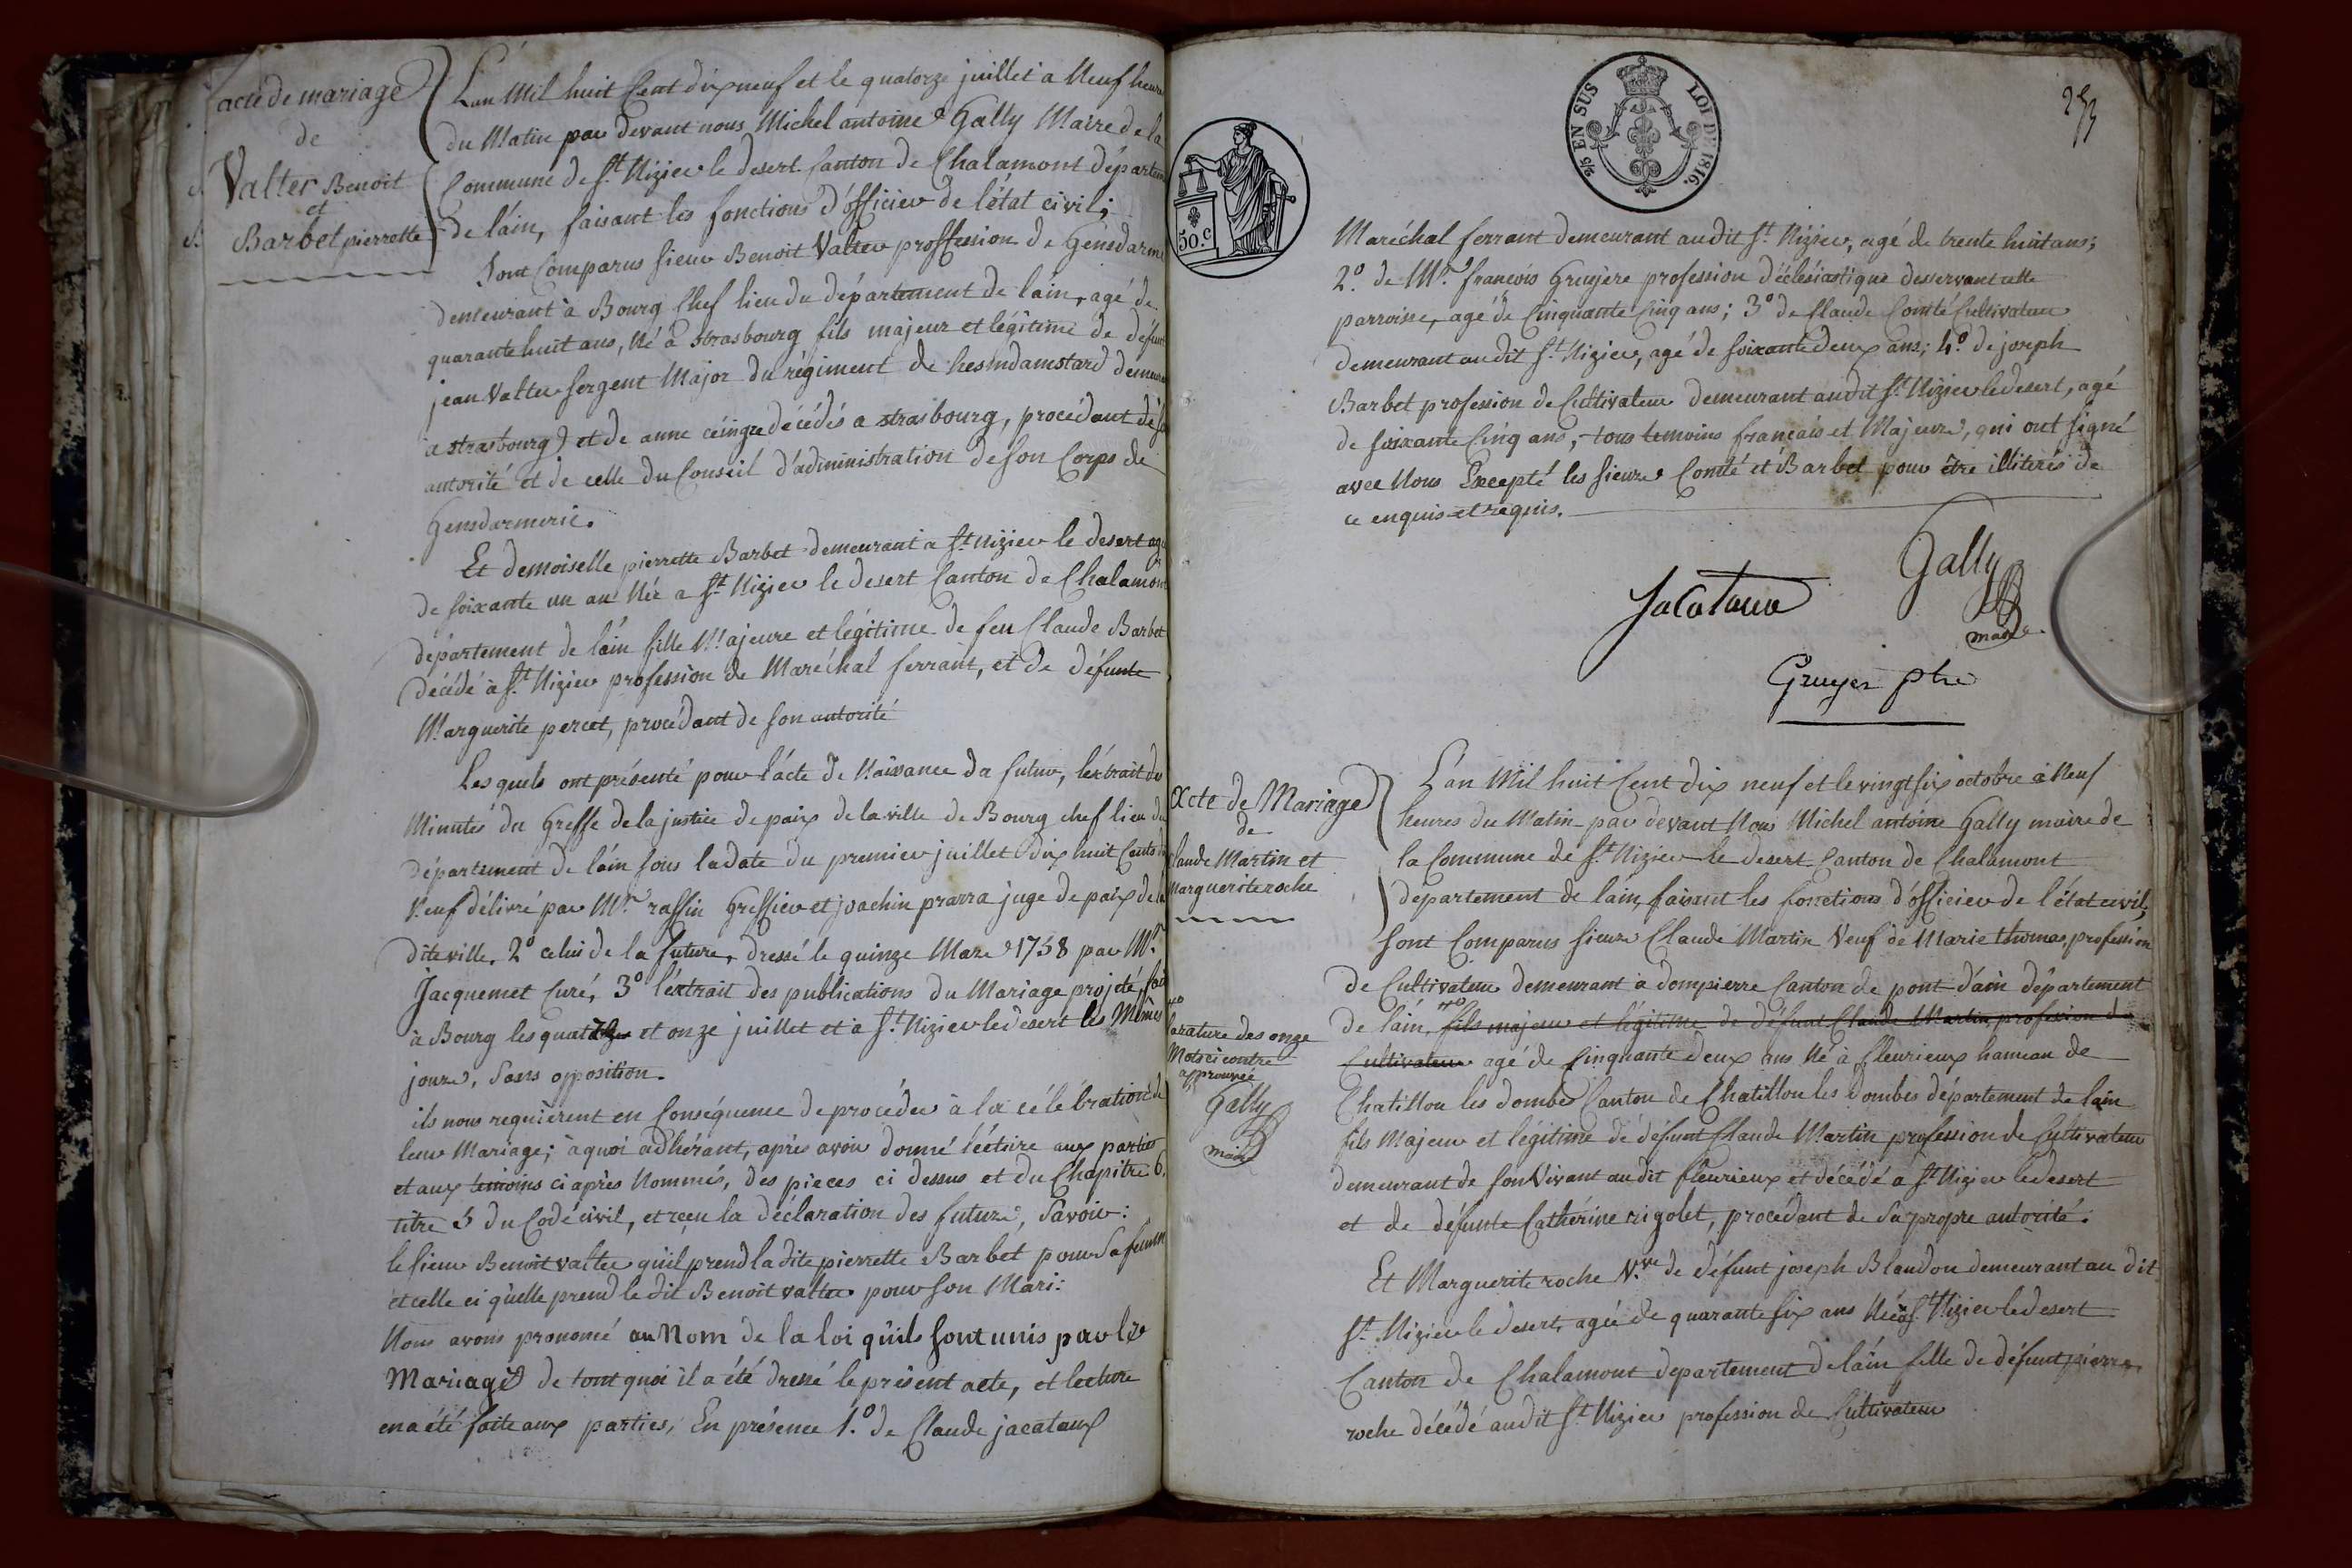 acte de mariage
de
Valter Benoit
et
Barbet pierrette
L'an Mil huit Cent dix neuf et le quatorze juillet a Neuf heures
du Matin par devant nous Michel antoine Gally Maire de la
Commune de St. Nizier le desert Canton de Chalamont départem
de l'ain, faisant les fonctions d'officier de l'état civil;
Sont Comparus sieur Benoit Valter proffession de Gensdarme
demeurant à Bourg Chef lieu du département de lain, agé de
quarante huit ans, Né à Strasbourg fils majeur et légitime de défunt
jean Valter Sergent Major du régiment de hesindamstard demeurant
a strasbourg et de anne décédés a strasbourg, procédant de sa
autorité et de celle du Conseil d'administration de son Corps de
Gensdarmerie.
Et demoiselle pierrette Barbet demeurant a St. nizier le desert agée
de soixante un an Née a St. Nizier le desert Canton de Chalamont
département de l'ain fille Majeure et légitime de feu Claude Barbet
décédé à St. Nizier profession de Maréchal ferrant, et de défunte
Marguerite percet, procédant de son autorité
Les quels ont présenté pour l'acte de Naissance du futur, l'extrait des
Minutes du Greffe de la justice de paix de la ville de Bourg chef lieu du
département de l'ain sous la date du premier juillet dix huit Cents dix
Neuf délivré par Mr. raffin Greffier et joachin prarra juge de paix de la
dite ville, 2o celui de la future, dressé le quinze Mars 1758 par Mr.
Jacquemet Curé, 3o l'extrait des publications du Mariage projeté, fait
à Bourg les quatre et onze juillet et à St. Nizier le desert les Mêmes
jours, sans opposition.
ils nous requièrent en Conséquence de procéder à la célébration de
leur Mariage; à quoi adhérant, après avoir donné lecture aux parties
et aux témoins ci après Nommés, des pieces ci dessus et du Chapitre 6,
titre 5 du Code civil, et reçu la déclaration des futurs, Savoir:
le sieur Benoit valter qu'il prend la dite pierrette Barbet pour Sa femme
et celle ci qu'elle prend le dit Benoit valter pour son Mari:
Nous avons prononcé au Nom de la loi qu'ils sont unis par le
Mariage de tout quoi il a été dressé le présent acte, et lecture
en a été faite aux parties, En présence 1.o de Claude jacataux
50.c
2/5 EN SUS LOI DE 1816.
253
Maréchal ferrant demeurant audit St. Nizier, agé de trente huit ans;
2.o de Mr. francois Gruyère profession d'éclésiastique desservant cette
parroisse, agé de Cinquante Cinq ans; 3o de Claude Comté Cultivateur
demeurant au dit St. Nizier, agé de soixante deux ans; 4.o de joseph
Barbet profession de Cultivateur demeurant audit St. Nizier le desert, agé
de soixante Cinq ans, tous temoins français et Majeurs, qui ont signé
avec Nous Excepté les sieurs Comté et Barbet pour être illitérés de
ce enquis et requis.
Jacataux
Gally
maire
Gruyer ptre
Acte de Mariage
de
Claude Martin et
Marguerite roche
L'an Mil huit Cent dix neuf et le vingt six octobre à Neuf
heures du Matin par devant Nous Michel antoine Gally maire de
la Commune de St. Nizier le desert Canton de Chalamont
département de l'ain, faisant les fonctions d'officier de l'état civil,
sont Comparus sieurs Claude Martin Veuf de Marie thomas, profession
de Cultivateur demeurant à dompierre Canton de pont d'ain département
de l'ain, fils majeur et légitime de défunt Claude Martin, profession de
Cultivateur agé de Cinquante deux ans Né à fleurieux hameau de
Chatillon les dombes Canton de Chatillon les Dombes département de l'ain
fils Majeur et légitime de défunt Claude Martin profession de Cultivateur
demeurant de son Vivant audit fleurieux et décédé a St Nizier le desert
et de défunte Cathérine rigolet, procédant de Sa propre autorité.
rature des onze
Mots ci contre
approuvée
Gally
maire
Et Marguerite roche Vve de défunt joseph Blandon demeurant au dit
St. Nizier le desert, agée de quarante six ans Née à St. Nizier le desert
Canton de Chalamont departement de l'ain fille de défunt pierre
roche décédé audit St. Nizier profession de Cultivateur